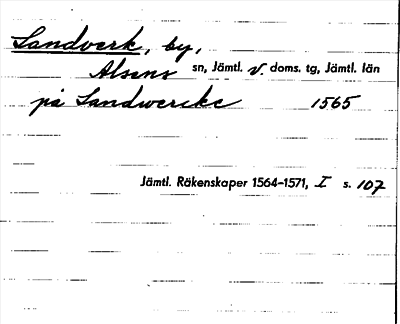 Landverk, by,
Alsens sn, Jämtl. v. doms. tg, Jämtl. län
på Landwerke 1565
Jämtl. Räkenskaper 1564-1571, I s. 107